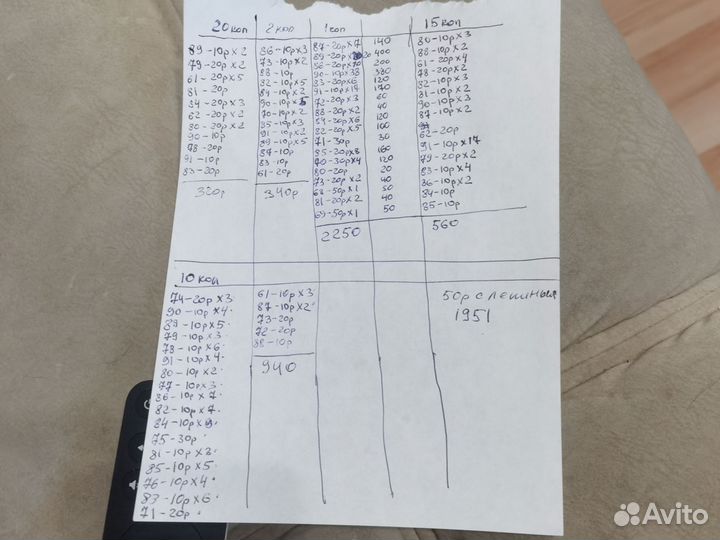 20 коп
89-10р x 2
79-20р x 2
61-20р x 5
81-20р
84-20р x 3
62-20р x 2
80-20р x 2
90-10р
78-20р
91-10р
83-20р
320р
2 коп
86-10р x 3
73-10р x 2
88-10р
82-10р x 5
84-10р x 2
90-10р x 5
70-10р x 2
85-10р x 3
91-10р x 2
89-10р x 5
87-10р
83-10р
61-20р
340р
1 коп
87-20р x 7 140
89-20р x 20 400
86-20р x 10 200
90-10р x 38 380
83-20р x 6 120
91-10р x 17 170
72-20р x 3 60
88-20р x 2 40
84-20р x 6 120
82-20р x 5 100
71-30р 30
85-20р x 8 160
70-30р x 4 120
80-20р 20
73-20р x 2 40
68-50р x 1 50
81-20р x 2 40
69-50р x 1 50
2250
15 коп
80-10р x 3
88-10р x 2
61-20р x 4
78-20р x 2
82-10р x 3
81-10р x 2
90-10р x 3
87-10р x 2
62-20р
91-10р x 17
79-20р x 2
83-10р x 4
86-10р x 2
84-10р
85-10р
560
10 коп
74-20р x 3
90-10р x 4
89-10р x 5
79-10р x 3
78-10р x 6
91-10р x 4
80-10р x 2
77-10р x 3
86-10р x 7
82-10р x 7
84-10р x 9
75-30р
81-10р x 3
85-10р x 5
76-10р x 4
83-10р x 6
71-20р
61-10р x 3
87-10р x 2
73-20р
72-20р
88-10р
940
50р с лениным
1951
Avito